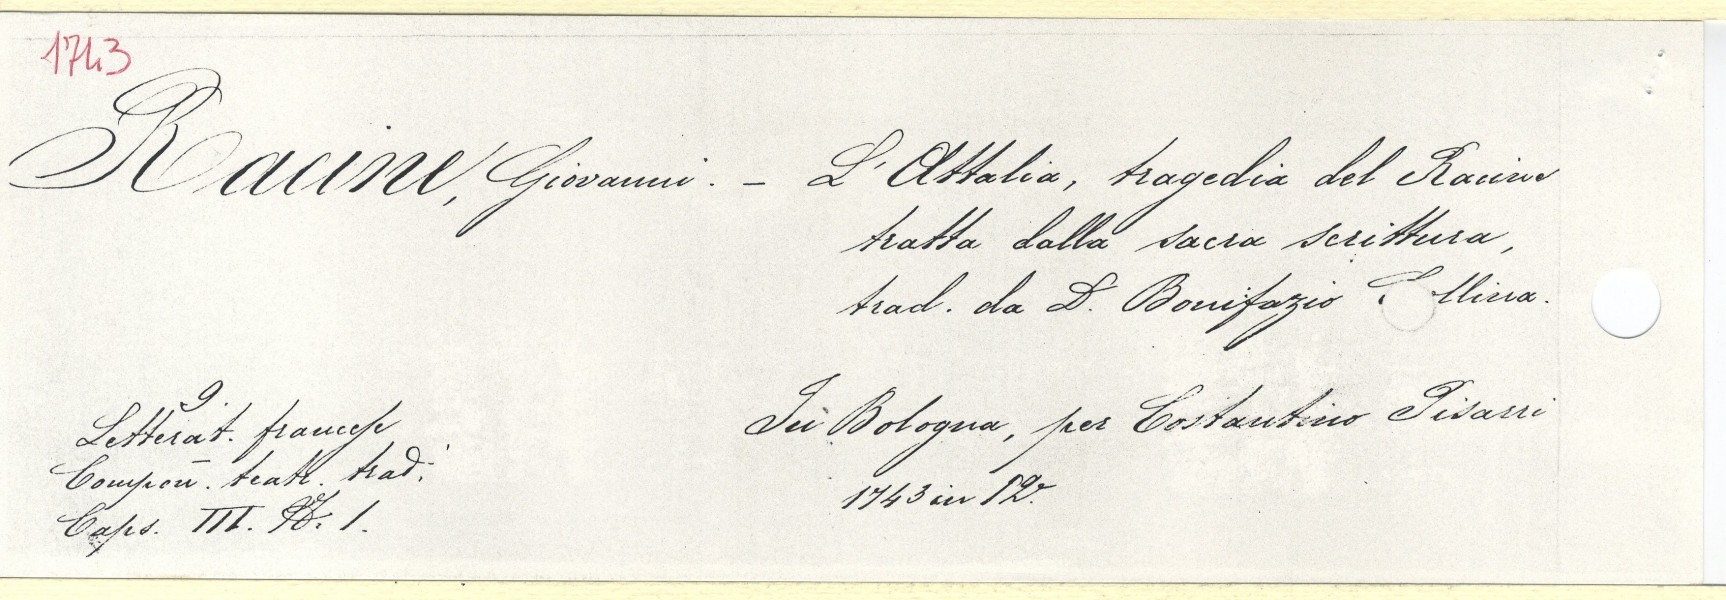 1743
Racine, Giovanni. – L'Attalia, tragedia del Racine
tratta dalla sacra scrittura,
trad. da D. Bonifazio Collina.
In Bologna, per Costantino Pisarri
1743 in 12°.
9.
Letterat. francese
Compon. teatr. trad.
Caps. III. N. 1.